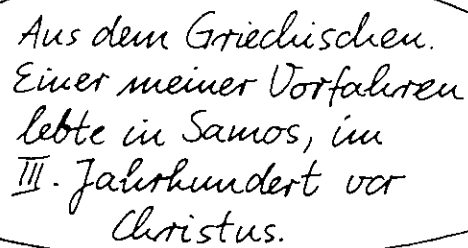 Aus dem Griechischen.
Einer meiner Vorfahren
lebte in Samos, im
III. Jahrhundert vor
Christus.